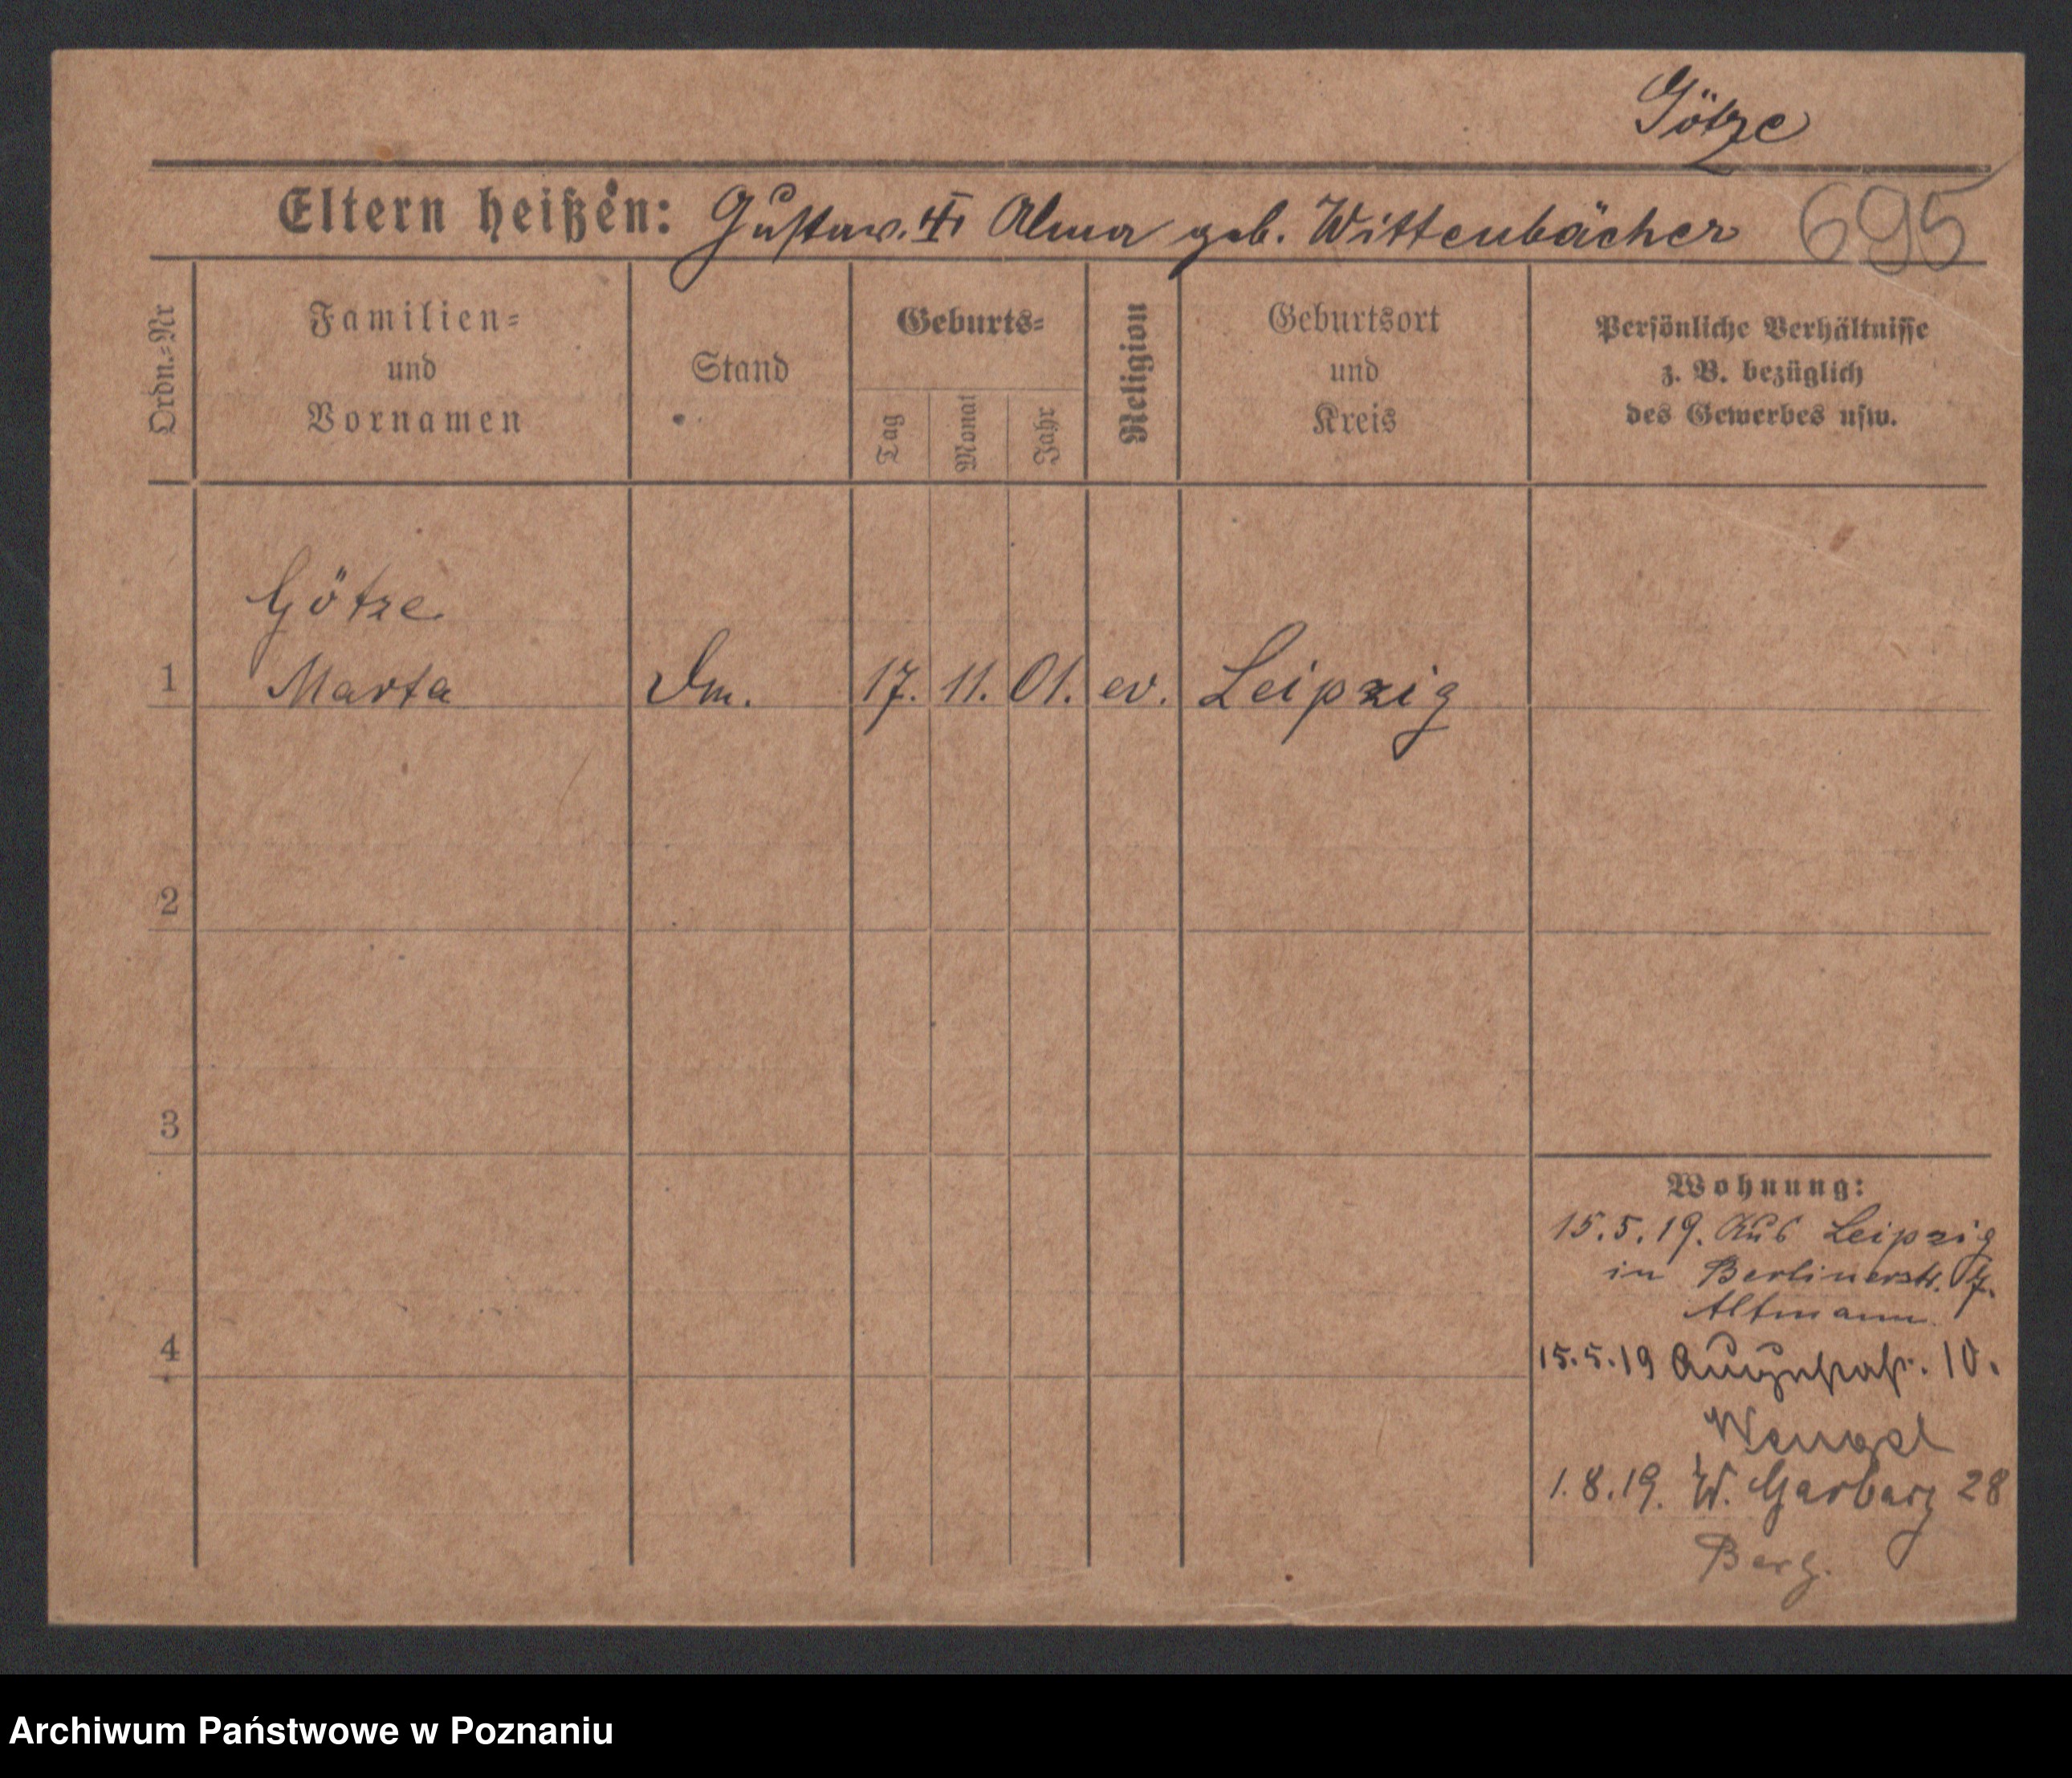 Götze
Eltern heißen: Gustav. Alma geb. Wittenbächer 695
Ordn.-Nr
Familien- und Vornamen
Stand
Geburts-
Tag
Monat
Jahr
Religion
Geburtsort und Kreis
Persönliche Verhältnisse z. B. bezüglich des Gewerbes usw.
Götze
1 Marta 17. 11. 01. ev. Leipzig
2
3
4
Wohnung:
15.5.19. Aus Leipzig
in Berlinerstr. 7.
Altmann.
15.5.19 10.
1.8.19. W. Garbary 28
Archiwum Państwowe w Poznaniu